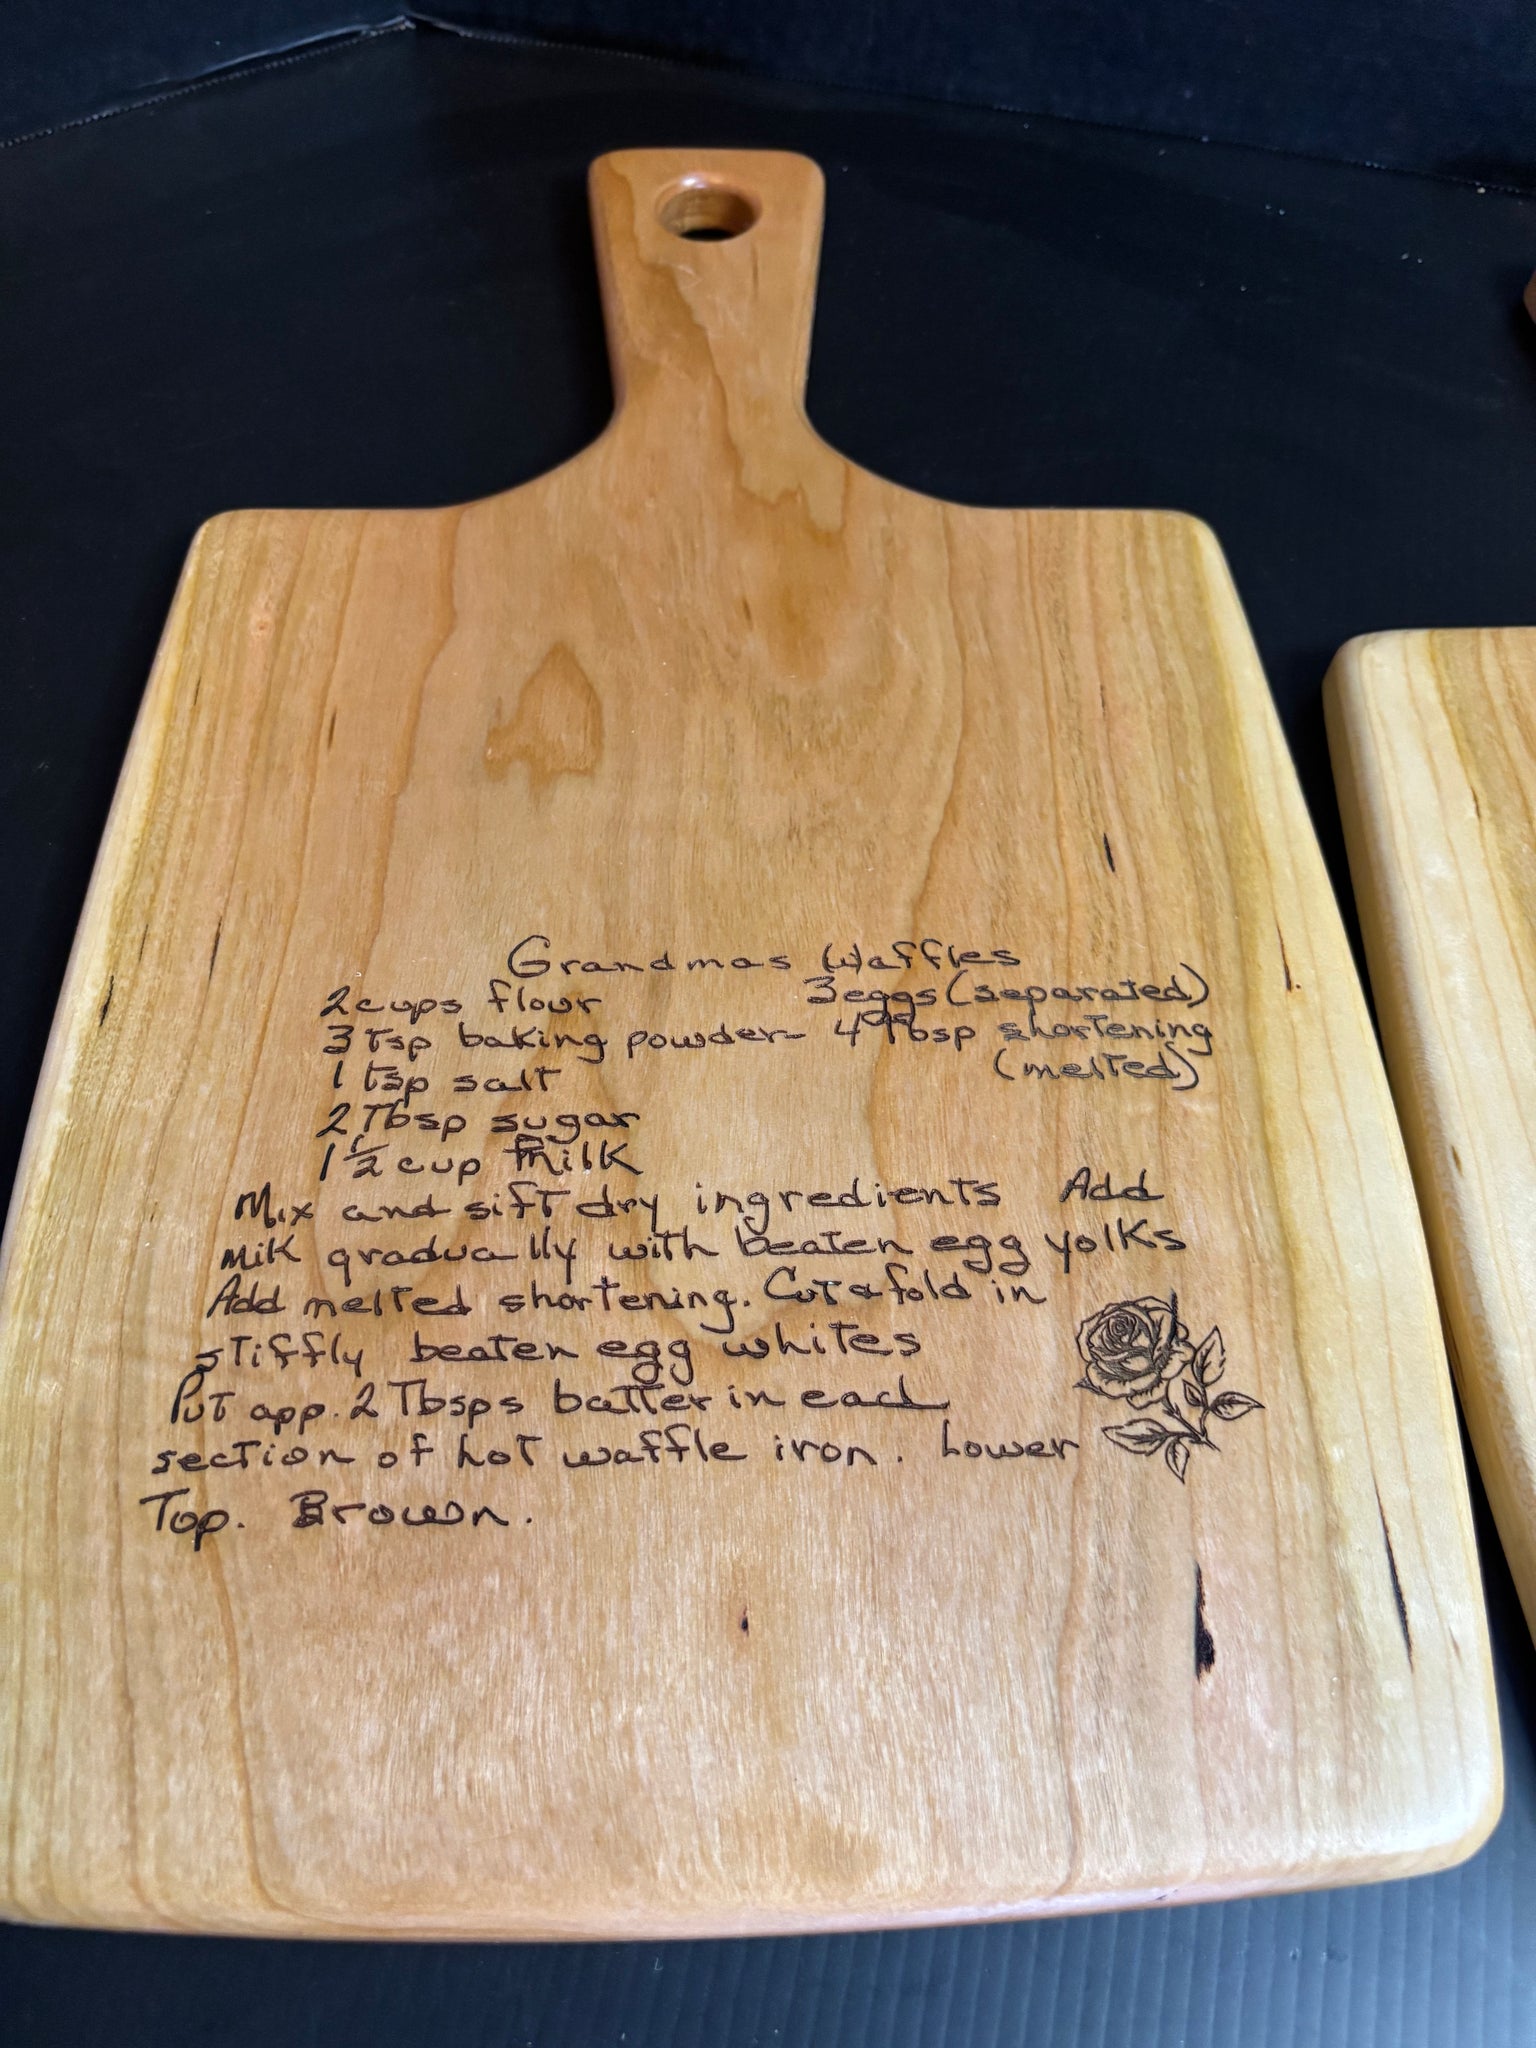 Grandmas Waffles
2 cups flour 3 eggs (separated)
3 tsp baking powder- 4 Tbsp shortening
1 tsp salt (melted)
2 Tbsp sugar
1 1/2 cup milk
Mix and sift dry ingredients Add
milk gradually with beaten egg yolks
Add melted shortening. Cut & fold in
stiffly beaten egg whites
Put app. 2 Tbsps batter in each
section of hot waffle iron. Lower
Top. Brown.